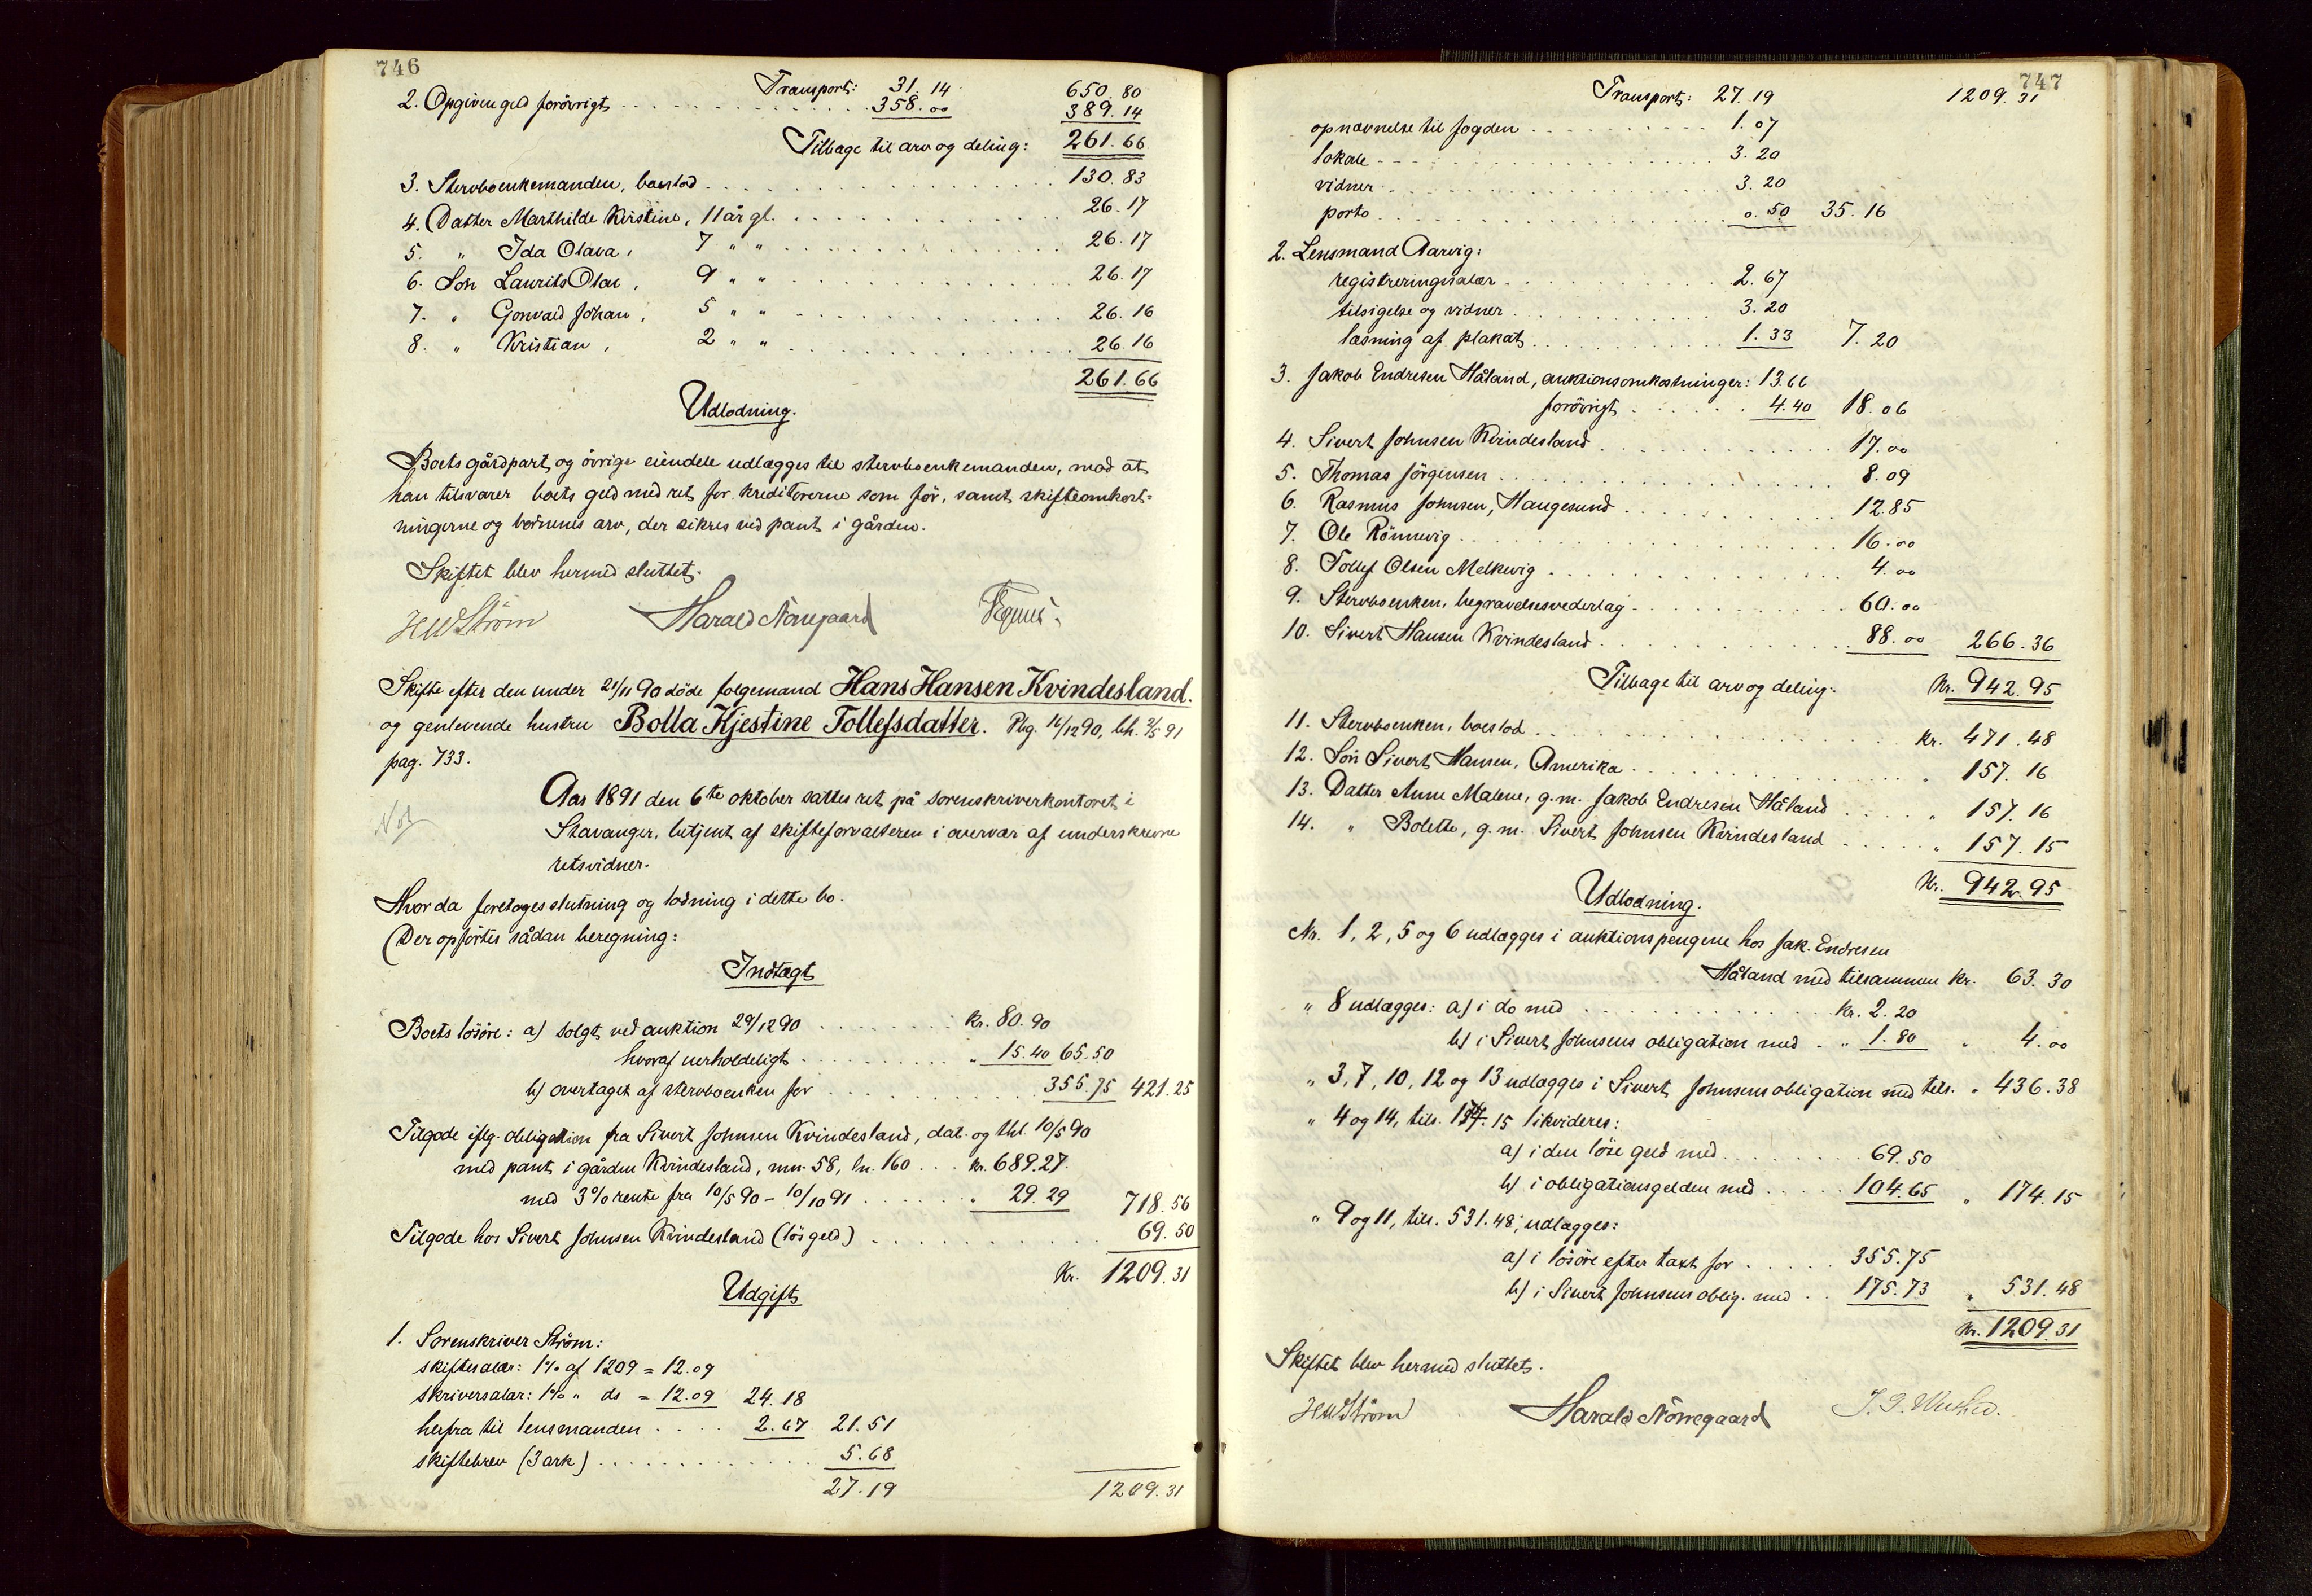 746
Transport: 31.14 650.80
2. Opgiven gjeld forövrigt 358.00 389.14
Tilbage til arv og deling: 261.66
3. Stervboenkemanden, boeslod 130.83
4. Datter Marthilde Kristine, 11 år gl. 26.17
5. " Ida Olava, 7 " " 26.17
6. Sön Laurits Olai, 9 " " 26.17
7. " Gonvald Johan, 5 " " 26.16
8. " Kristian, 2 " " 26.16
261.66
Udlodning.
Boets gårdpart og övrige eiendele udlægges til stervboenkemanden, mod at
han tilsvarer boets gjeld med ret for kreditorerne som för, samt skifteomkost-
ningerne og börnenes arv, der sikres ved pant i gården.
Skiftet blev hermed sluttet.
HWStröm Harald Nörregaard
Skifte efter den under 21/11 90 döde folgemand Hans Hansen Kvindesland.
og genlevende hustru Bolla Kjestine Tollefsdatter. Pbg. 16/12 90, bh. 2/5 91
pag. 733.
Aar 1891 den 6te oktober sattes ret på sorenskriverkontoret i
Stavanger, betjent af skifteforvalteren i overvær af underskrevne
retsvidner.
Hvorda foretoges slutning og lodning i dette bo.
Der opförtes sådan beregning:
Indtægt
Boets lösöre: a) solgt ved auktion 29/12 90 kr. 80.90
hvoraf uerholdeligt " 15.40 65.50
b) overtaget af stervboenken for 355.75 421.25
Tilgode iflg. obligation fra Sivert Johnsen Kvindesland, dat. og thl. 10/5 90
med pant i gården Kvindesland, mn. 58, ln. 160 kr. 689.27.
med 3% rente fra 10/5 90 - 10/10 91 " 29.29 718.56
Tilgode hos Sivert Johnsen Kvindesland (lös gjeld) 69.50
Kr. 1209.31
Udgift
1. Sorenskriver Ström:
skiftesalær: 1% af 1209 = 12.09
skriversalær: 1% " do = 12.09 24.18
herfra til lensmanden 2.67 21.51
skiftebrev (3 ark) 5.68
27.19 1209.31
747
Transport: 27.19 1209.31
opnævnelse til fogden 1.07
lokale 3.20
vidner 3.20
porto 0.50 35.16
2. Lensmand Aarvig:
registreringssalær 2.67
tilsigelse og vidner 3.20
læsning af plakat 1.33 7.20
3. Jakob Endresen Håland, auktionsomkostninger: 13.66
forövrigt 4.40 18.06
4. Sivert Johnsen Kvindesland 17.00
5. Thomas Jörgensen 8.09
6. Rasmus Johnsen, Haugesund 12.85
7. Ole Rönnevig 16.00
8. Tollef Olsen Melkevig 4.00
9. Stervboenken, begravelsesvederlag 60.00
10. Sivert Hansen Kvindesland 88.00 266.36
Tilbage til arv og deling: Kr. 942.95
11. Stervboenken, boeslod kr. 471.48
12. Sön Sivert Hansen, Amerika " 157.16
13. Datter Anne Malene, g.m. Jakob Endresen Håland " 157.16
14. " Bolette, g.m. Sivert Johnsen Kvindesland " 157.15
Kr. 942.95
Udlodning.
Nr. 1, 2, 5 og 6 udlægges i auktionspengene hos Jak. Endresen
Håland med tilsammen kr. 63.30
" 8 udlægges: a) i do med kr. 2.20
b) i Sivert Johnsens obligation med " 1.80 " 4.00
" 3, 7, 10, 12 og 13 udlægges i Sivert Johnsens obligation med tils. " 436.38
" 4 og 14, tils. 174.15 likvideres:
a) i den löse gjeld med 69.50
b) i obligationsgjelden med 104.65 " 174.15
" 9 og 11, tils. 531.48, udlægges:
a) i lösöre efter taxt for 355.75
b) i Sivert Johnsens oblig. med 175.73 " 531.48
Kr. 1209.31
Skiftet blev hermed sluttet.
HWStröm Harald Nörregaard